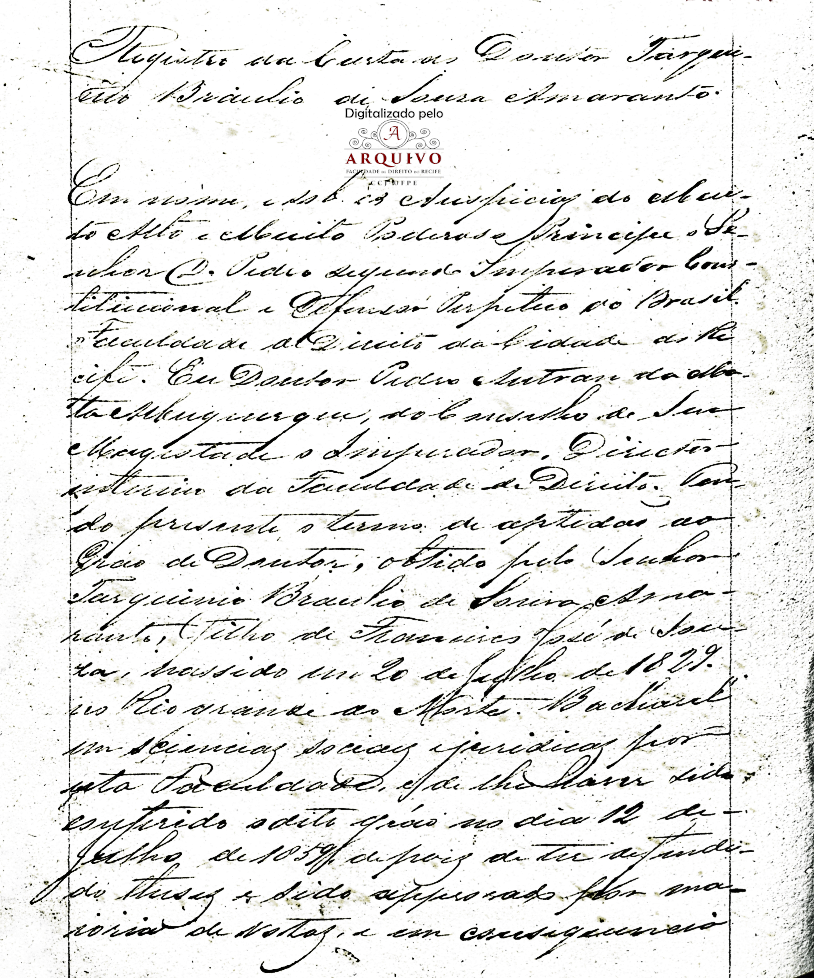 Registro da Carta do Doutor Tarqui-
nio Braulio de Souza Amaranto.
Digitalizado pelo
A
ARQUIVO
FACULDADE DE DIREITO DO RECIFE
CCJ UFPE
Em nome, e sob os Auspicios do Mui-
to Alto e Muito Poderoso Principe o Se-
nhor D. Pedro segundo Imperador Cons-
titucional e Defensor Perpetuo do Brasil.
Faculdade de Direito da Cidade do Re
cife. Eu Doutor Pedro Autran da Ma-
ta Albuquerque, do Conselho de Sua
Magestade o Imperador, Director
interino da Faculdade de Direito. Ten-
do presente o termo de aptidão ao
Gráo de Doutor, obtido pelo Senhor
Tarquinio Braulio de Souza Ama-
ranto, Filho de Francisco José de Sou-
za, nassido em 20 de Julho de 1829.
no Rio grande do Norte. Bacharel
em sciencias sociaes e juridicas por
esta Faculdade, e de lhe haver sido
conferido o dito gráo no dia 12 de
Julho de 1859, depois de ter defendi-
do theses e sido approvado por ma-
ioria de votos, e em consequencia